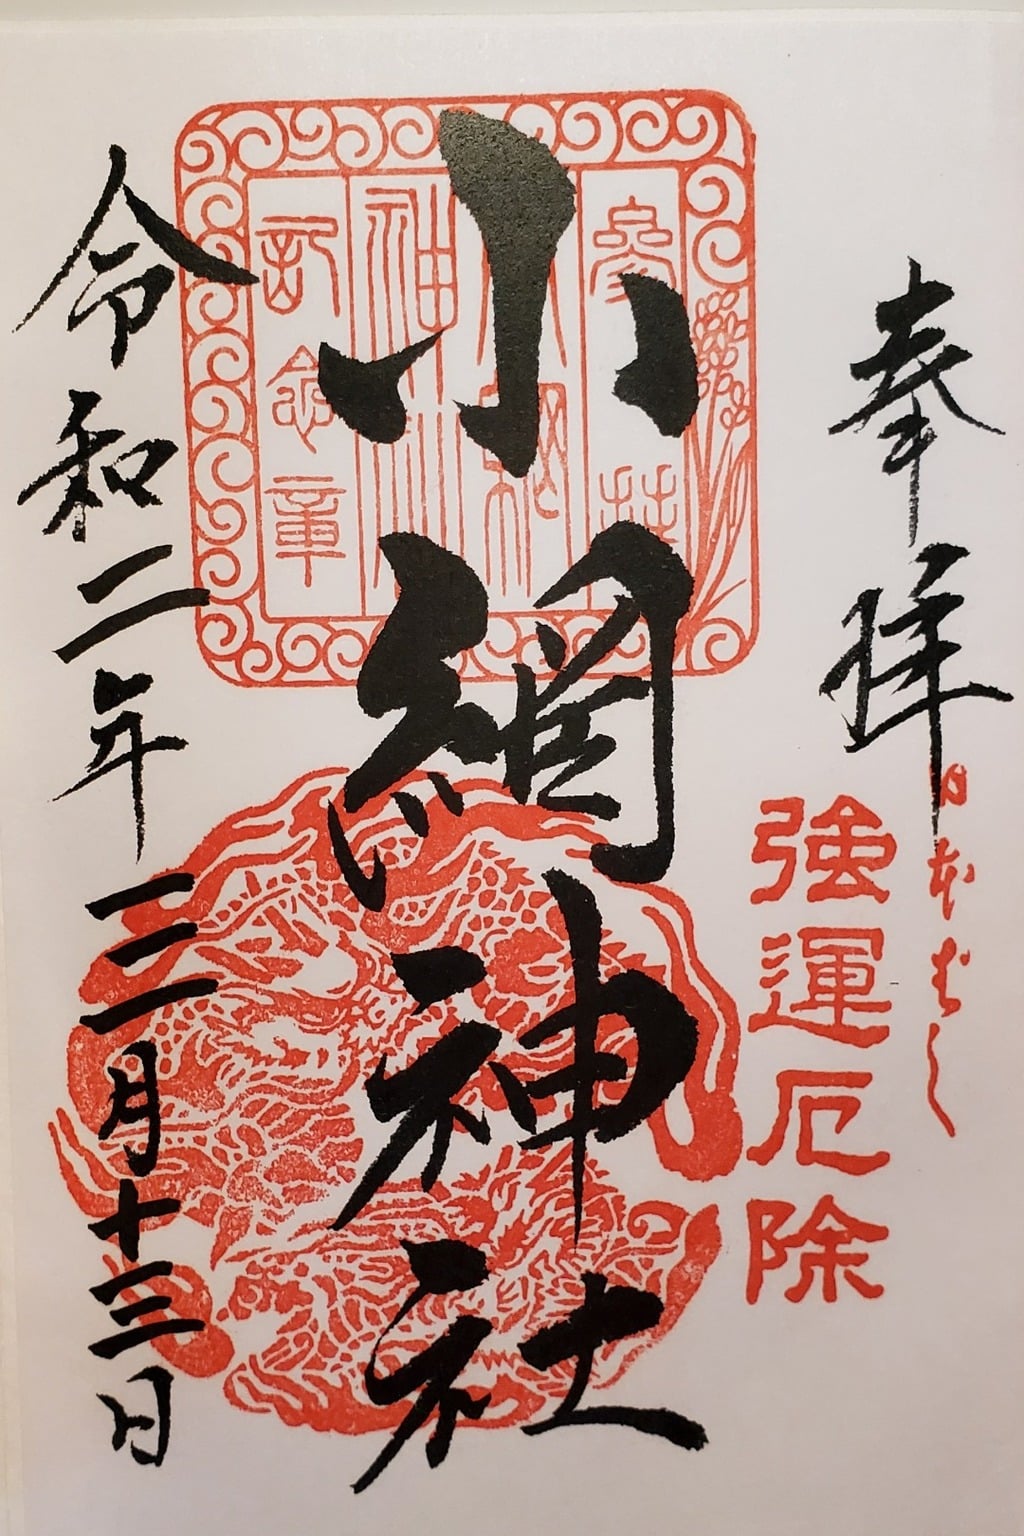 奉拝
日本ばし
強運厄除
小網神社
參拝
小網
神社
記念章
令和二年三月十三日